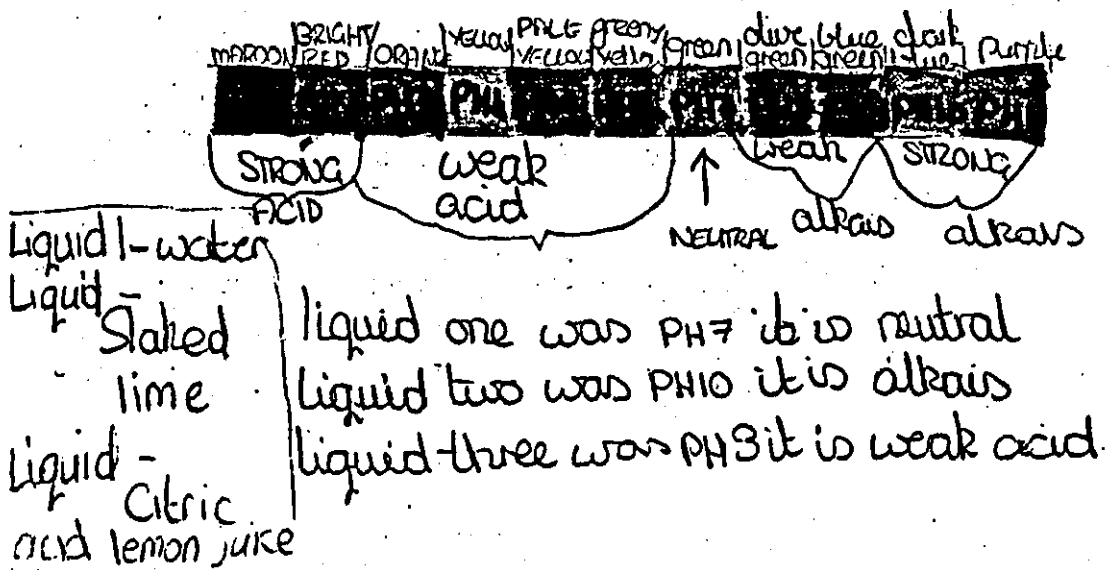 MAROON BRIGHT RED ORANGE YELLOW PALE YELLOW greeny yellow green olive green blue green dark blue purple
PH4 PH7
STRONG ACID weak acid NEUTRAL weak alkais STRONG alkais
Liquid 1-water
Liquid -
Slaked
lime
Liquid -
Citric
acid lemon juice
liquid one was PH7 it is neutral
liquid two was PH10 it is alkais
liquid three was PH3 it is weak acid.